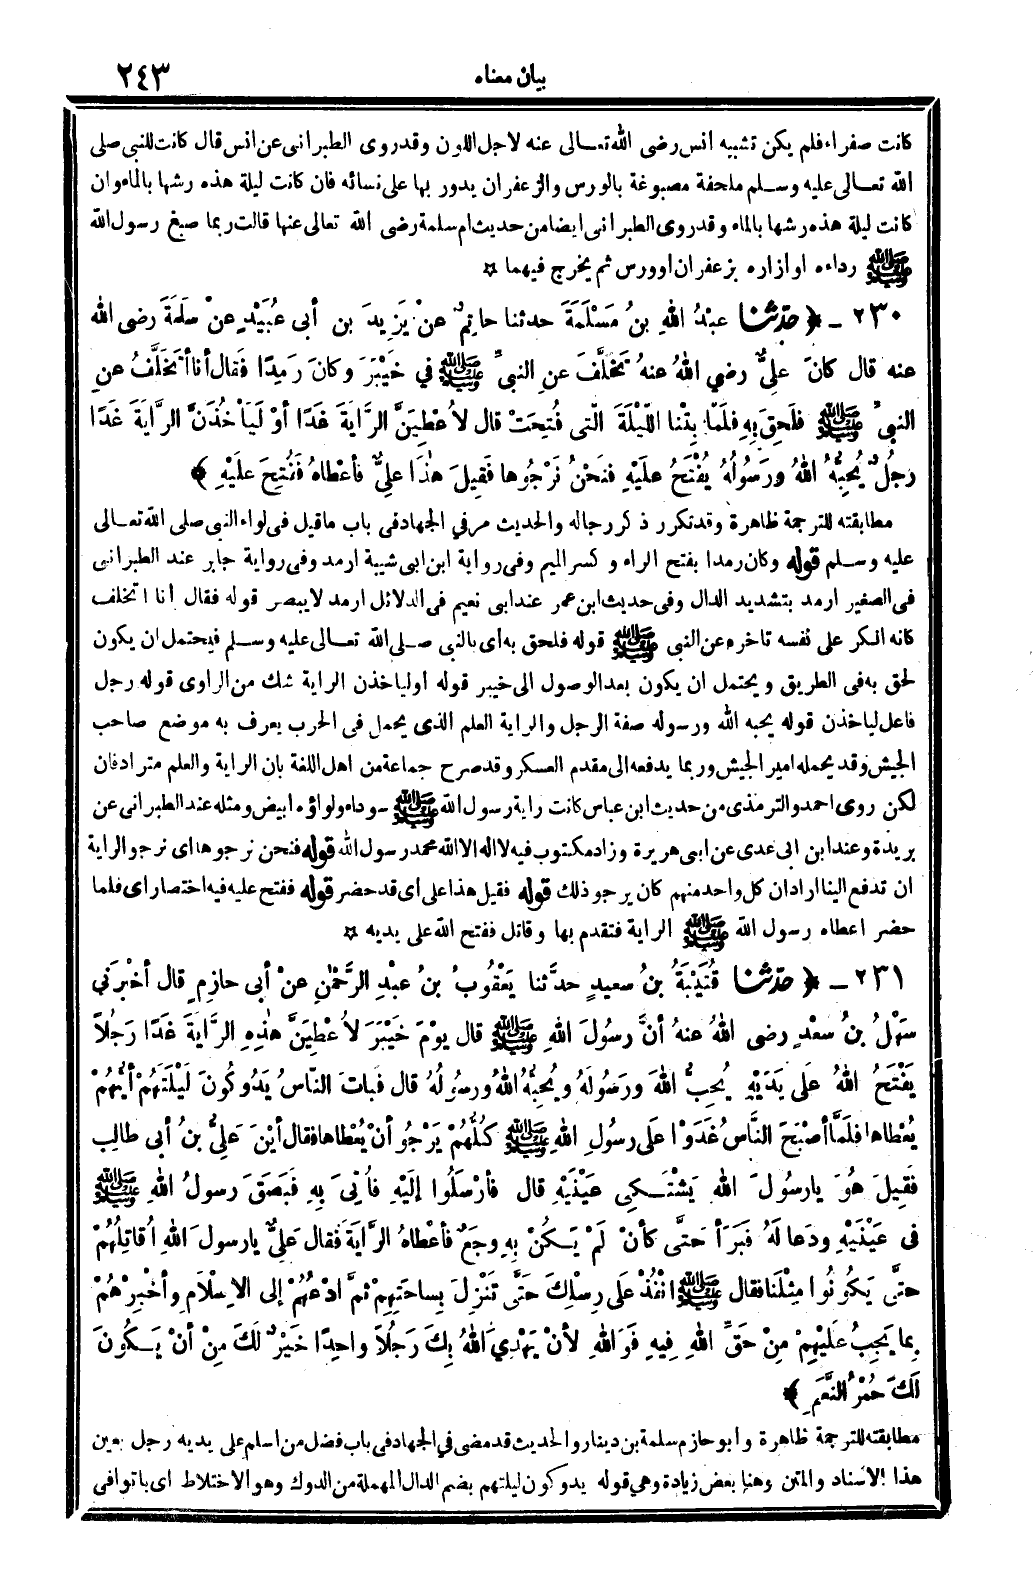 بيان معناه ٢٤٣
كانت صفراء فلم يكن تشبيه انس رضى الله تعالى عنه لاجل اللون وقد روى الطبرانى عن انس قال كانت للنبي صلى
الله تعالى عليه وسلم ملحفة مصبوغة بالورس والزعفران يدور بها على نسائه فان كانت ليلة هذه رشها بالماء وان
كانت ليلة هذه رشها بالماء وقد روى الطبرانى ايضا من حديث ام سلمة رضى الله تعالى عنها قالت ربما صبغ رسول الله
ﷺ رداءه او ازاره بزعفران او ورس ثم يخرج فيهما ✩
٢٣٠ ـ ﴿ حدثنا عبْدُ اللهِ بنُ مَسْلَمَةَ حدثنا حاتِمٌ عنْ يَزِيدَ بن أبى عُبَيْدٍ عنْ سَلَمَةَ رضى الله
عنه قال كانَ علِيٌّ رضي اللهُ عنهُ تَخَلَّفَ عنِ النبيِّ ﷺ في خَيْبَرَ وكانَ رَمِدًا فَقال أنا أتَخَلَّفُ عنِ
النبيِّ ﷺ فلَحِقَ بِهِ فلَمَّا بِتْنا اللَّيْلَةَ الَّتى فُتِحَتْ قال لأُعْطِيَنَّ الرَّايَةَ غَدًا أوْ لَيَأخُذَنَّ الرَّايَةَ غَدًا
رجُلٌ يُحِبُّهُ اللهُ ورَسُولُهُ يُفْتَحُ علَيْهِ فنَحْنُ نَرْجُوها فَقِيلَ هٰذا علِيٌّ فأعْطاهُ فَفُتِحَ علَيْهِ ﴾
مطابقته للترجمة ظاهرة وقد تكرر ذكر رجاله والحديث مر في الجهاد فى باب ماقيل فى لواء النبي صلى الله تعالى
عليه وسلم قوله وكان رمدا بفتح الراء وكسر الميم وفى رواية ابن ابى شيبة ارمد وفى رواية جابر عند الطبرانى
فى الصغير ارمد بتشديد الدال وفى حديث ابن عمر عند ابى نعيم فى الدلائل ارمد لا يبصر قوله فقال أنا اتخلف
كانه انكر على نفسه تاخره عن النبي ﷺ قوله فلحق به أى بالنبي صلى الله تعالى عليه وسلم فيحتمل ان يكون
لحق به فى الطريق ويحتمل ان يكون بعد الوصول الى خيبر قوله اولياخذن الراية شك من الراوى قوله رجل
فاعل لياخذن قوله يحبه الله ورسوله صفة الرجل والراية العلم الذى يحمل فى الحرب يعرف به موضع صاحب
الجيش وقد يحمله امير الجيش وربما يدفعه الى مقدم العسكر وقد صرح جماعة من اهل اللغة بان الراية والعلم مترادفان
لكن روى احمد والترمذى من حديث ابن عباس كانت راية رسول الله ﷺ سوداء ولواؤه ابيض ومثله عند الطبرانى عن
بريدة وعند ابن ابى عدى عن ابى هريرة وزاد مكتوب فيه لا اله الا الله محمد رسول الله قوله فنحن نرجوها اى نرجو الراية
ان تدفع الينا ارادان كل واحد منهم كان يرجو ذلك قوله فقيل هذا على اى قد حضر قوله ففتح عليه فيه اختصار اى فلما
حضر اعطاه رسول الله ﷺ الراية فتقدم بها وقاتل ففتح الله على يديه ✩
٢٣١ ـ ﴿ حدثنا قُتَيْبَةُ بنُ سعيدٍ حدَّثنا يَعْقُوبُ بنُ عبْدِ الرَّحْمٰنِ عنْ أبى حازِمٍ قال أخْبرَني
سَهْلُ بنُ سعْدٍ رضى اللهُ عنهُ أنَّ رسُولَ اللهِ ﷺ قال يوْمَ خَيْبَرَ لأُعْطِيَنَّ هٰذِهِ الرَّايةَ غَدًا رَجُلاً
يَفْتَحُ اللهُ علَى يَدَيْهِ يُحِبُّ اللهَ ورَسُولَهُ ويُحِبُّهُ اللهُ ورسُولُهُ قال فَباتَ النّاسُ يَدُوكُونَ لَيْلَتَهُمْ أيُّهُمْ
يُعْطاها فلَمَّا أصْبَحَ النَّاسُ غَدَوْا علَى رسُولِ اللهِ ﷺ كُلُّهُمْ يَرْجُو أنْ يُعْطاها فقال أيْنَ علِيُّ بنُ أبى طالِبٍ
فَقِيلَ هوَ يارسولَ اللهِ يَشْتَكِى عيْنَيْهِ قال فأرْسَلُوا إلَيْهِ فأُتِيَ بِهِ فَبَصَقَ رسولُ اللهِ ﷺ
فى عَيْنَيْهِ ودَعا لَهُ فبَرَأَ حتَّى كأنْ لَمْ يَكُنْ بِهِ وجَعٌ فأعْطاهُ الرَّايَةَ فقال علِيٌّ يارسولَ اللهِ أُقاتِلُهُمْ
حتَّى يَكُونُوا مِثْلَنا فقال ﷺ انْفُذْ علَى رِسْلِكَ حَتَّى تَنْزِلَ بِساحَتِهِمْ ثمَّ ادْعُهُمْ إلى الإسْلَامِ وأخْبِرْهُمْ
بِما يَجِبُ علَيْهِمْ مِنْ حَقِّ اللهِ فِيهِ فَوَاللهِ لأنْ يَهْدِيَ اللهُ بِكَ رَجُلاً واحِدًا خَيْرٌ لَكَ مِنْ أنْ يَكُونَ
لَكَ حُمْرُ النَّعَمِ ﴾
مطابقته للترجمة ظاهرة وأبو حازم سلمة بن دينار والحديث قد مضى في الجهاد فى باب فضل من اسلم على يديه رجل بعين
هذا الاسناد والمتن وهنا بعض زيادة وهي قوله يدوكون ليلتهم بضم الدال المهملة من الدوك وهو الاختلاط اى باتوا فى